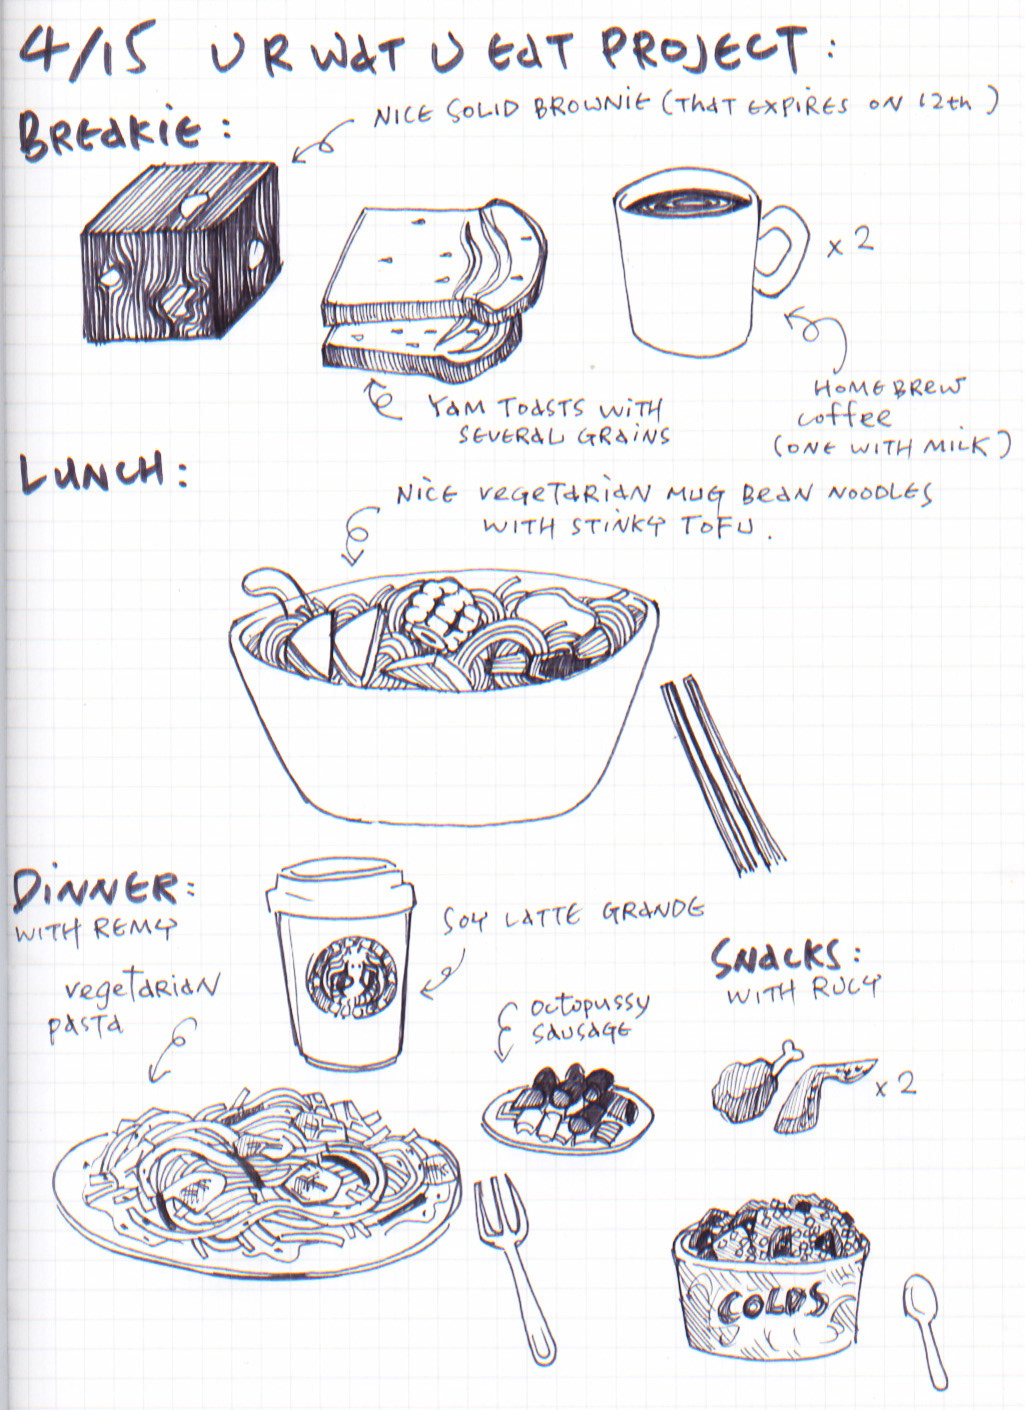 4/15 U R WAT U EAT PROJECT:
BREAKIE:
NICE SOLID BROWNIE (THAT EXPIRES ON 12th)
x 2
HOMEBREW
coffee
(ONE WITH MILK)
YAM TOASTS WITH
SEVERAL GRAINS
LUNCH:
NICE vegeTARIAN MUG BEAN NOODLES
WITH STINKY TOFU.
DINNER:
WITH REMY
SOY LATTE GRANDE
vegeTARIAN
PASTA
OCTOPUSSY
SAUSAGE
SNACKS:
WITH RUCY
x 2
COLDS